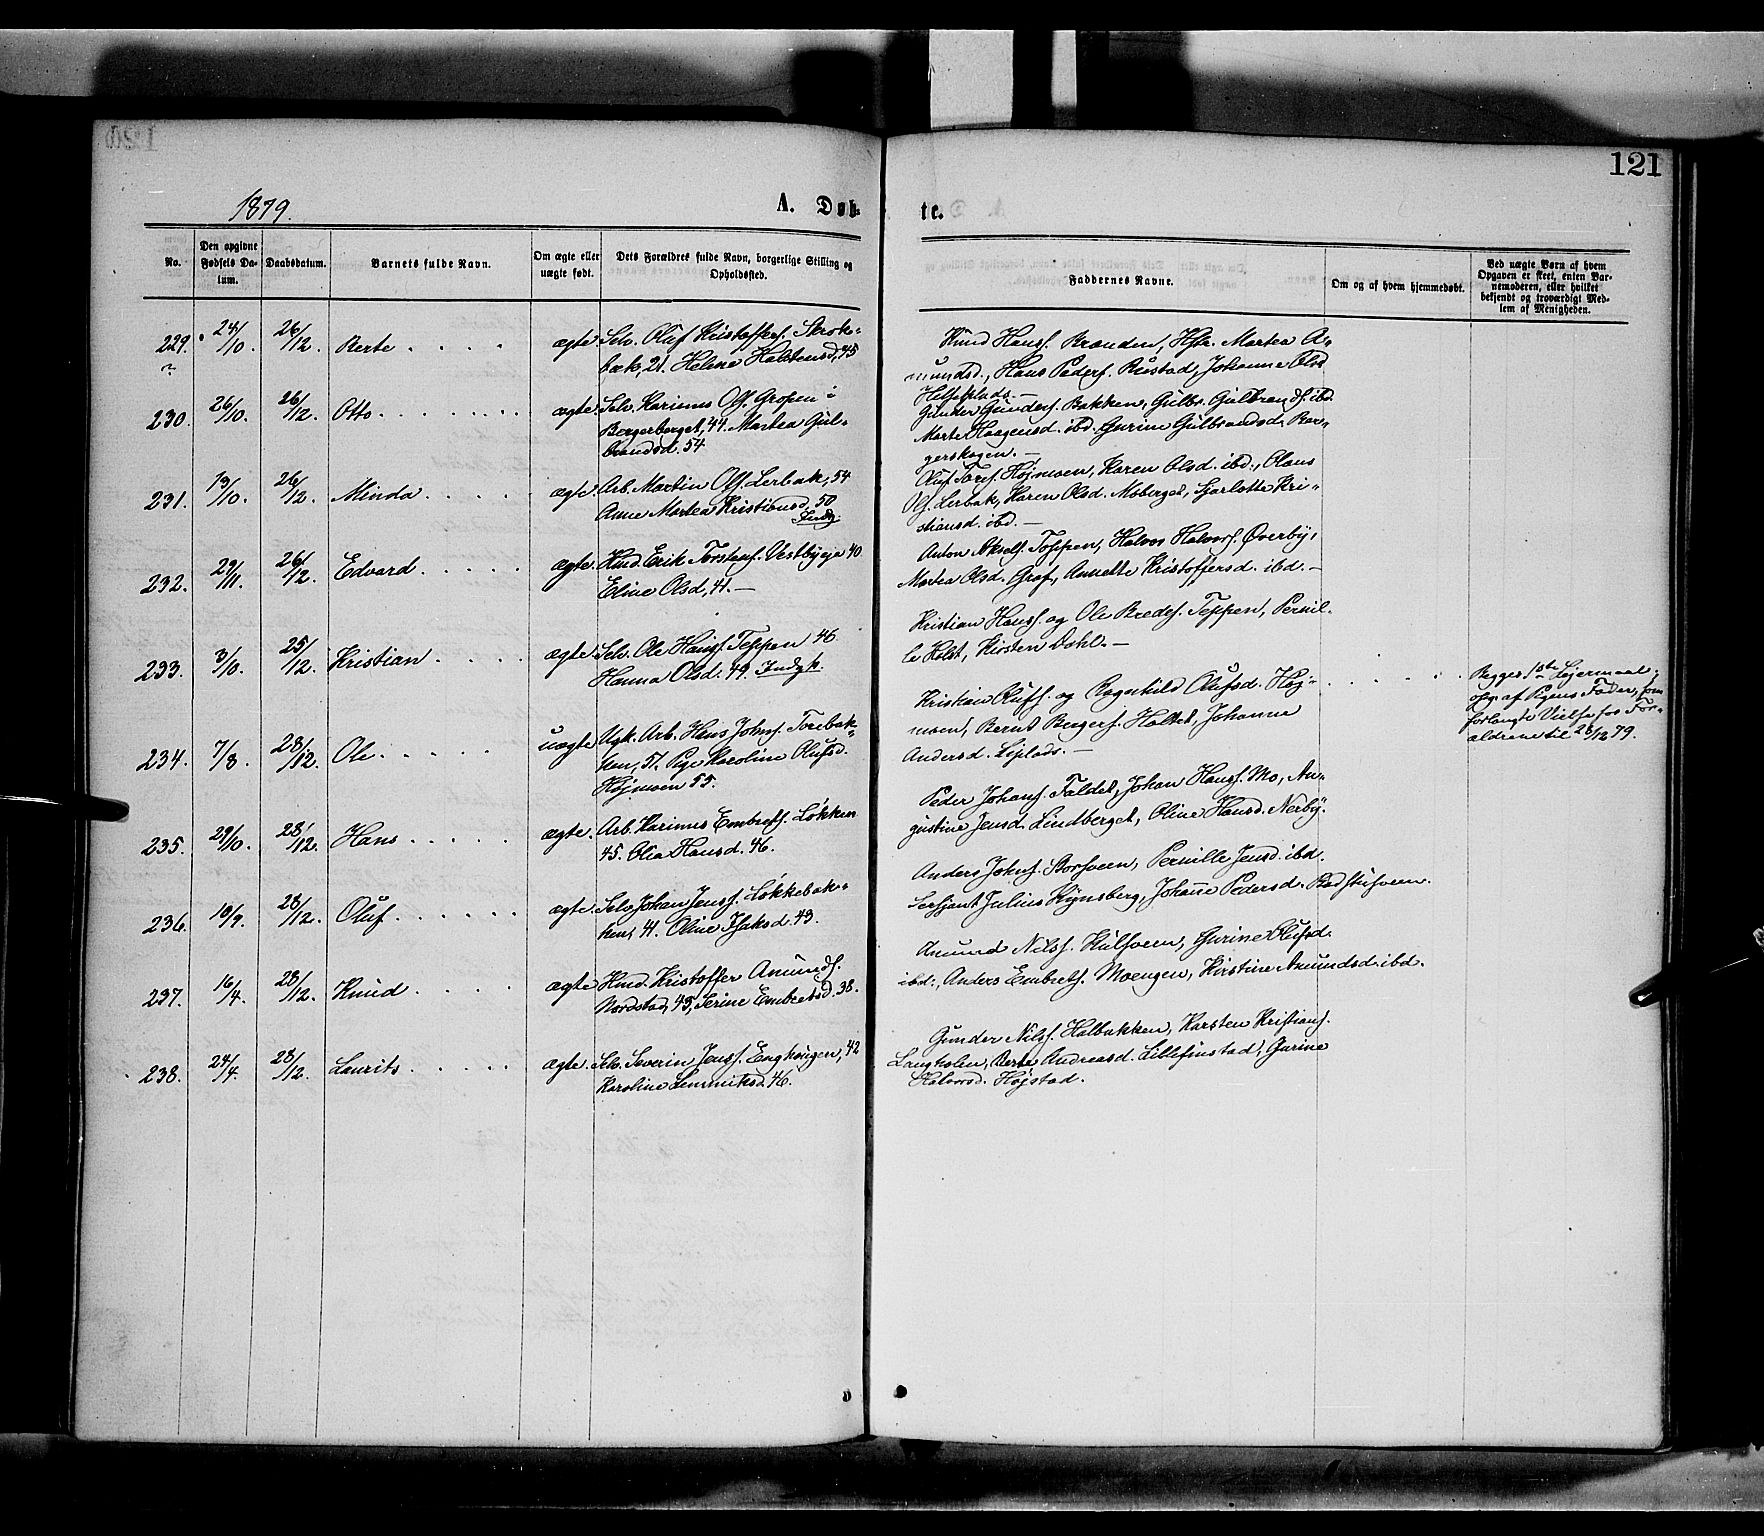 121
1879.
A. Døb-
te.
No.
Den opgivne Fødsels Da-tum.
Daabsdatum.
Barnets fulde Navn.
Om ægte eller uægte født.
Dets Forældres fulde Navn, borgerlige Stilling og Opholdssted.
Faddernes Navne.
Om og af hvem hjemmedøbt.
Ved uægte Børn af hvem Opgaven er skeet, enten Bar-nemoderen, eller hvilket bekjendt og troværdigt Med-lem af Menigheden.
229. 24/10. 26/12. Berte ægte Selv. Oluf Kristoffers. Skrok-
bæk, 21. Helene Halstensd, 45
Knud Hans. Branden, Hstr. Martea A-
mundsd., Hans Peders. Rustad, Johanne Olsd
230. 26/10. 26/12. Otto ægte Selv. Karinus Ols. Gropen i
Bergerberget, 44. Martea Gul-
brandsd. 54
Gunder Gunders. Bakken, Gulbr. Gulbrands. ibd.
Marte Haagensd. ibd. Gurine Gulbrandsd. Ber-
gerskogen.
231. 13/10. 26/12. Minda ægte Arb. Martin Ols. Lerbak, 54
Anne Martea Kristiansd, 50
Indg.
Oluf Tores. Højmoen, Karen Olsd. ibd., Olaus
Ols. Lerbak, Karen Olsd. Moberget, Sjarlotte Kri-
stiansd. ibd.
232. 29/11. 26/12. Edvard ægte Hmd. Erik Torstens. Vestbyeje 40
Eline Olsd, 41.
Anton Aksels. Toppen, Halvor Halvors. Øverby,
Martea Olsd. Graf, Annette Kristoffersd. ibd.
233. 3/10. 25/12. Kristian ægte Selv. Ole Hans. Teppen 46.
Hanna Olsd. 49. Indgk.
Kristian Hans. og Ole Bredes. Teppen, Pernil-
le Holst, Kirsten Dahl.
234. 7/8. 28/12. Ole uægte Ugk. Arb. Hans Johns. Torebak-
ken, 57. Pige Karoline Olufsd.
Højmoen 55.
Kristian Olufs. og Ragnhild Olufsd. Høj-
moen, Bernt Bergers. Holtet, Johanne
Andersd. Liplads.
Begges 1ste Lejermaal;
opg. af Pigens Fader, som
forlangte Vielse for For-
ældrene til 28/12 79.
235. 29/10. 28/12. Hans ægte Arb. Karinus Embrets. Løkken
45. Olia Hansd. 46.
Peder Johans. Faldet, Johan Hans. Mo, Au-
gustine Jensd. Lindberget, Oline Hansd. Nerby.
236. 19/9. 28/12. Oluf ægte Selv. Johan Jens. Løkkebak-
ken, 41. Oline Isaksd. 43.
Anders Johns. Borsveen, Pernille Jensd. ibd.
Sersjant Julius Kynsberg, Johanne Pedersd. Badstusveen.
237. 16/4. 28/12. Knud ægte Hmd. Kristoffer Amunds.
Nordstad, 45, Serine Embretsd. 38.
Amund Nils. Kulsveen, Gurine Olufsd.
ibd., Anders Embrets. Moengen, Kirstine Amundsd. ibd.
238. 24/4. 28/12. Laurits ægte Selv. Severin Jens. Enghaugen, 42
Karoline 46.
Gunder Nils. Holbakken, Karsten Kristians.
Langholen, Berte Andreasd. Lillefinstad, Gurine
Halvorsd. Højstad.